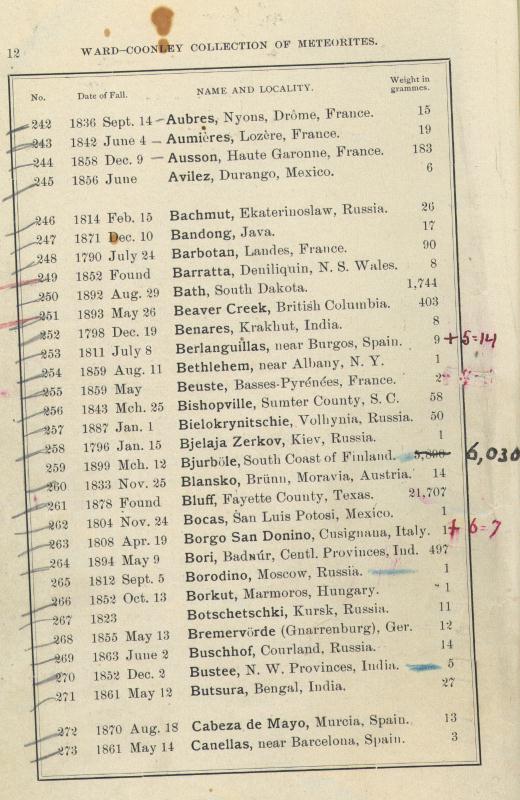 12 WARD–COONLEY COLLECTION OF METEORITES.
No. Date of Fall. NAME AND LOCALITY. Weight in grammes.
242 1836 Sept. 14 — Aubres, Nyons, Drôme, France. 15
243 1842 June 4 — Aumières, Lozère, France. 19
244 1858 Dec. 9 — Ausson, Haute Garonne, France. 183
245 1856 June Avilez, Durango, Mexico. 6
246 1814 Feb. 15 Bachmut, Ekaterinoslaw, Russia. 26
247 1871 Dec. 10 Bandong, Java. 17
248 1790 July 24 Barbotan, Landes, France. 90
249 1852 Found Barratta, Deniliquin, N. S. Wales. 8
250 1892 Aug. 29 Bath, South Dakota. 1,744
251 1893 May 26 Beaver Creek, British Columbia. 403
252 1798 Dec. 19 Benares, Krakhut, India. 8
253 1811 July 8 Berlanguillas, near Burgos, Spain. 9 + 5=14
254 1859 Aug. 11 Bethlehem, near Albany, N. Y. 1
255 1859 May Beuste, Basses-Pyrénées, France. 2
256 1843 Mch. 25 Bishopville, Sumter County, S. C. 58
257 1887 Jan. 1 Bielokrynitschie, Volhynia, Russia. 50
258 1796 Jan. 15 Bjelaja Zerkov, Kiev, Russia. 1
259 1899 Mch. 12 Bjurböle, South Coast of Finland. 6,030
260 1833 Nov. 25 Blansko, Brünn, Moravia, Austria. 14
261 1878 Found Bluff, Fayette County, Texas. 21,707
262 1804 Nov. 24 Bocas, San Luis Potosi, Mexico. 1
263 1808 Apr. 19 Borgo San Donino, Cusignana, Italy. 1 + 6=7
264 1894 May 9 Bori, Badnúr, Centl. Provinces, Ind. 497
265 1812 Sept. 5 Borodino, Moscow, Russia. 1
266 1852 Oct. 13 Borkut, Marmoros, Hungary. 1
267 1823 Botschetschki, Kursk, Russia. 11
268 1855 May 13 Bremervörde (Gnarrenburg), Ger. 12
269 1863 June 2 Buschhof, Courland, Russia. 14
270 1852 Dec. 2 Bustee, N. W. Provinces, India. 5
271 1861 May 12 Butsura, Bengal, India. 27
272 1870 Aug. 18 Cabeza de Mayo, Murcia, Spain. 13
273 1861 May 14 Canellas, near Barcelona, Spain. 3